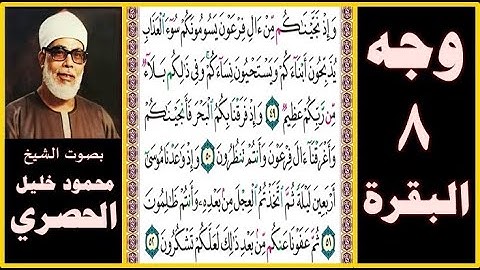 وجه
٨
البقرة
وَإِذْ نَجَّيْنَاكُم مِّنْ ءَالِ فِرْعَوْنَ يَسُومُونَكُمْ سُوٓءَ الْعَذَابِ
يُذَبِّحُونَ أَبْنَآءَكُمْ وَيَسْتَحْيُونَ نِسَآءَكُمْ وَفِي ذَٰلِكُم بَلَآءٌ
مِّن رَّبِّكُمْ عَظِيمٌ ٤٩ وَإِذْ فَرَقْنَا بِكُمُ الْبَحْرَ فَأَنجَيْنَٰكُمْ
وَأَغْرَقْنَآ ءَالَ فِرْعَوْنَ وَأَنتُمْ تَنظُرُونَ ٥٠ وَإِذْ وَٰعَدْنَا مُوسَىٰٓ
أَرْبَعِينَ لَيْلَةً ثُمَّ اتَّخَذْتُمُ الْعِجْلَ مِنۢ بَعْدِهِۦ وَأَنتُمْ ظَٰلِمُونَ
٥١ ثُمَّ عَفَوْنَا عَنكُم مِّنۢ بَعْدِ ذَٰلِكَ لَعَلَّكُمْ تَشْكُرُونَ ٥٢
بصوت الشيخ
محمود خليل
الحصري